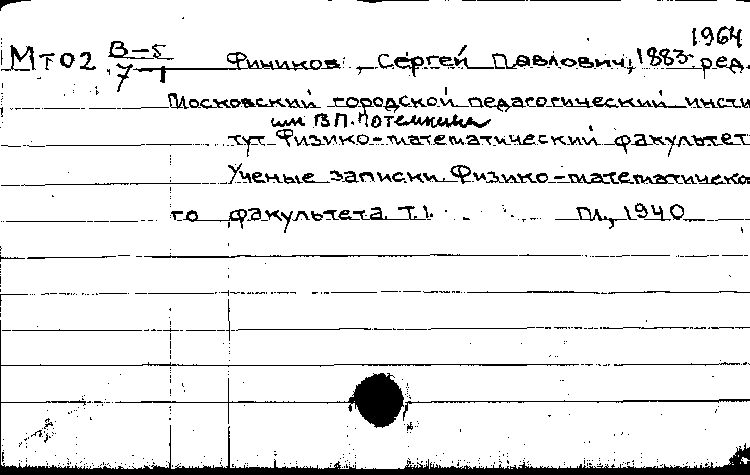 1964
Мт02 В-5 Фиников, Сергей Павлович, 1883- ред.
7-1
Московский городской педагогический инсти
им В.П. Потемкина
тут Физико-математический факультет
Ученые записки Физико-математическо
го факультета. Т.1. М., 1940